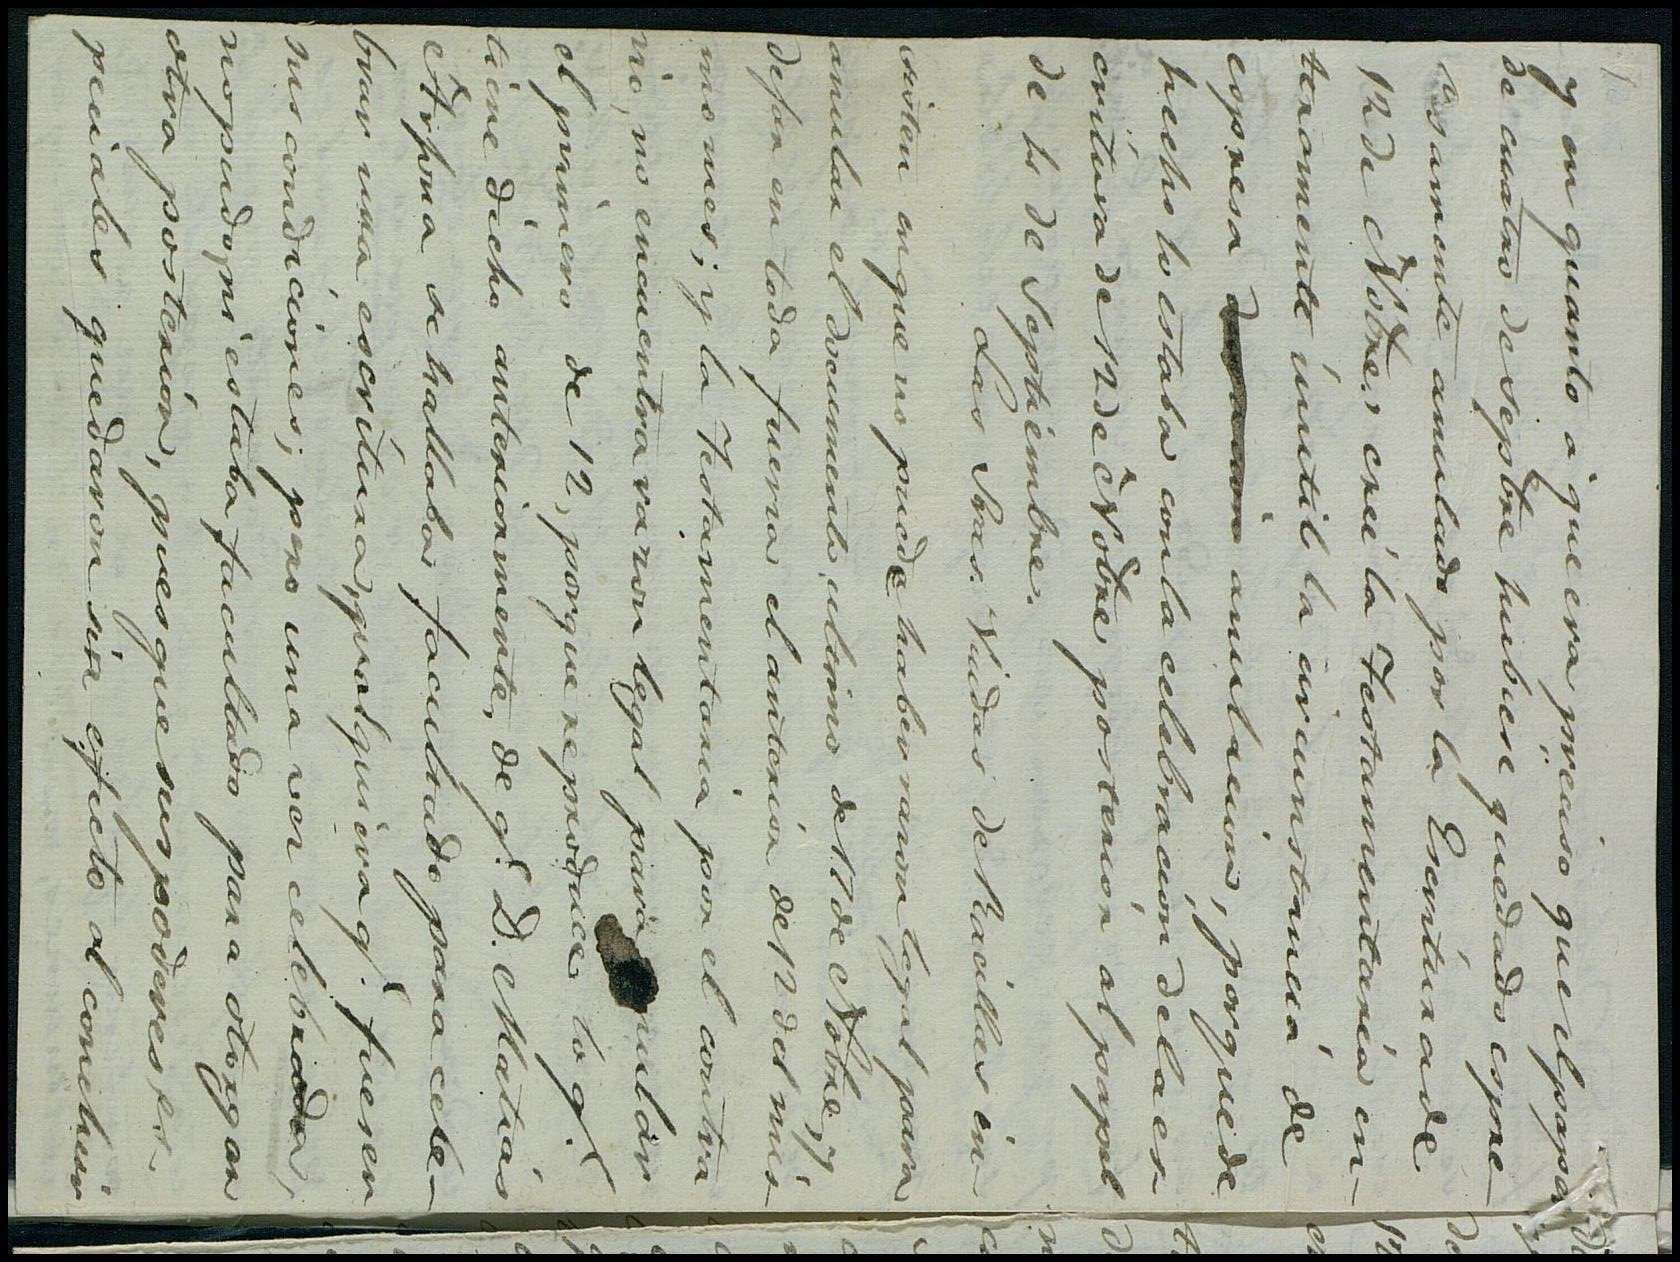 y en quanto a que era preciso que el papel
de cuatro de sepbre hubiese quedado expre-
samente anulado por la Escritura de
12 de Nobre, creé la Testamentaria en-
teramente inutil la circunstancia de
expresa anulacion, porque de
hecho lo estaba con la celebracion de la es-
critura de 12 de Nobre posterior al papel
de 4 de Septiembre.
Las Sras. Viudas de Racillas in-
sisten en que no puede haber razon legal para
anular el documento ultimo de 17 de Nobre, y
dejar en toda fuerza el anterior de 12 del mis-
mo mes; y la Testamentaria por el contra
rio, no encuentra razon legal para anular
el primero de 12, porque reproduce lo q.e
tiene dicho anteriormente, de q.e D. Matias
Arpona se hallaba facultado para cele-
brar una escritura, qualquiera q.e fuesen
sus condiciones; pero una vez celebrada,
no pudo, ni estaba facultado para otorgar
otra posterior, pues que sus poderes es-
peciales quedaron sin efecto al concluir